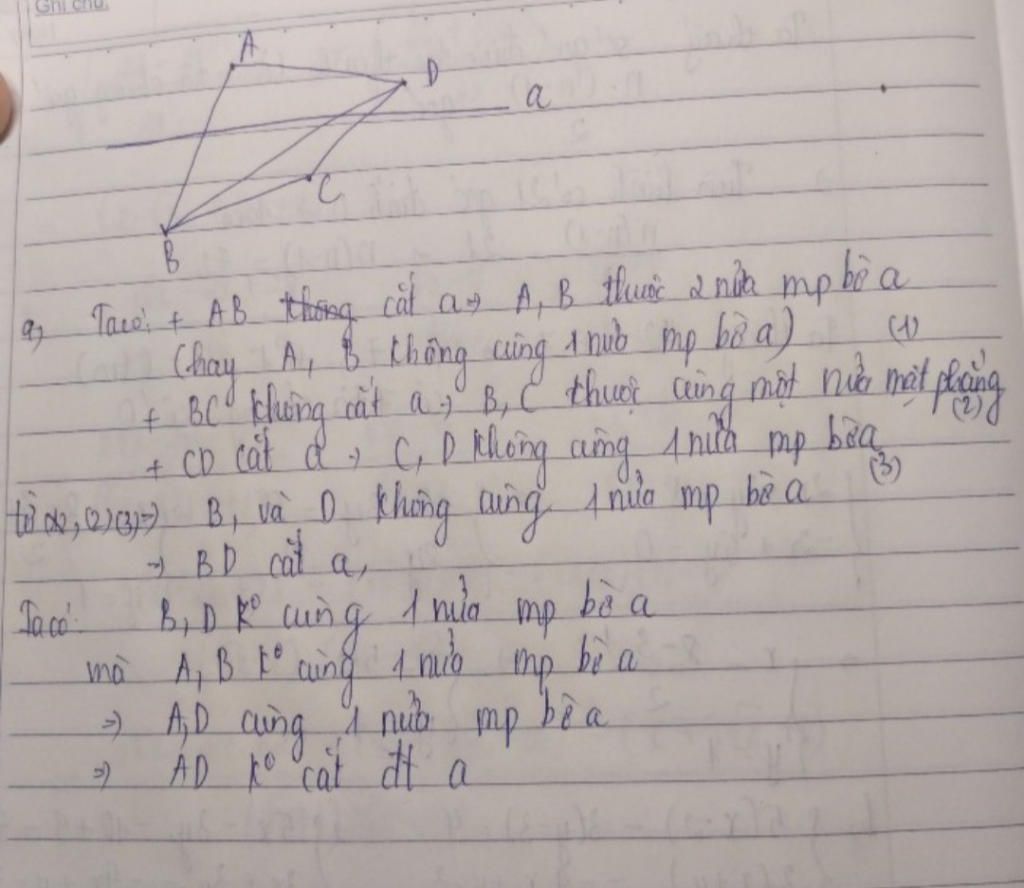 Ghi chú:
A
D
a
C
B
a, Ta có: + AB không cắt a => A, B thuộc 2 nửa mp bờ a
(hay A, B không cùng 1 nửa mp bờ a) (1)
+ BC không cắt a => B, C thuộc cùng một nửa mặt phẳng (2)
+ CD cắt a => C, D không cùng 1 nửa mp bờ a (3)
từ (2), (3) => B, và D không cùng 1 nửa mp bờ a
=> BD cắt a,
Ta có: B, D k° cùng 1 nửa mp bờ a
mà A, B k° cùng 1 nửa mp bờ a
=> A, D cùng 1 nửa mp bờ a
=> AD k° cắt đt a